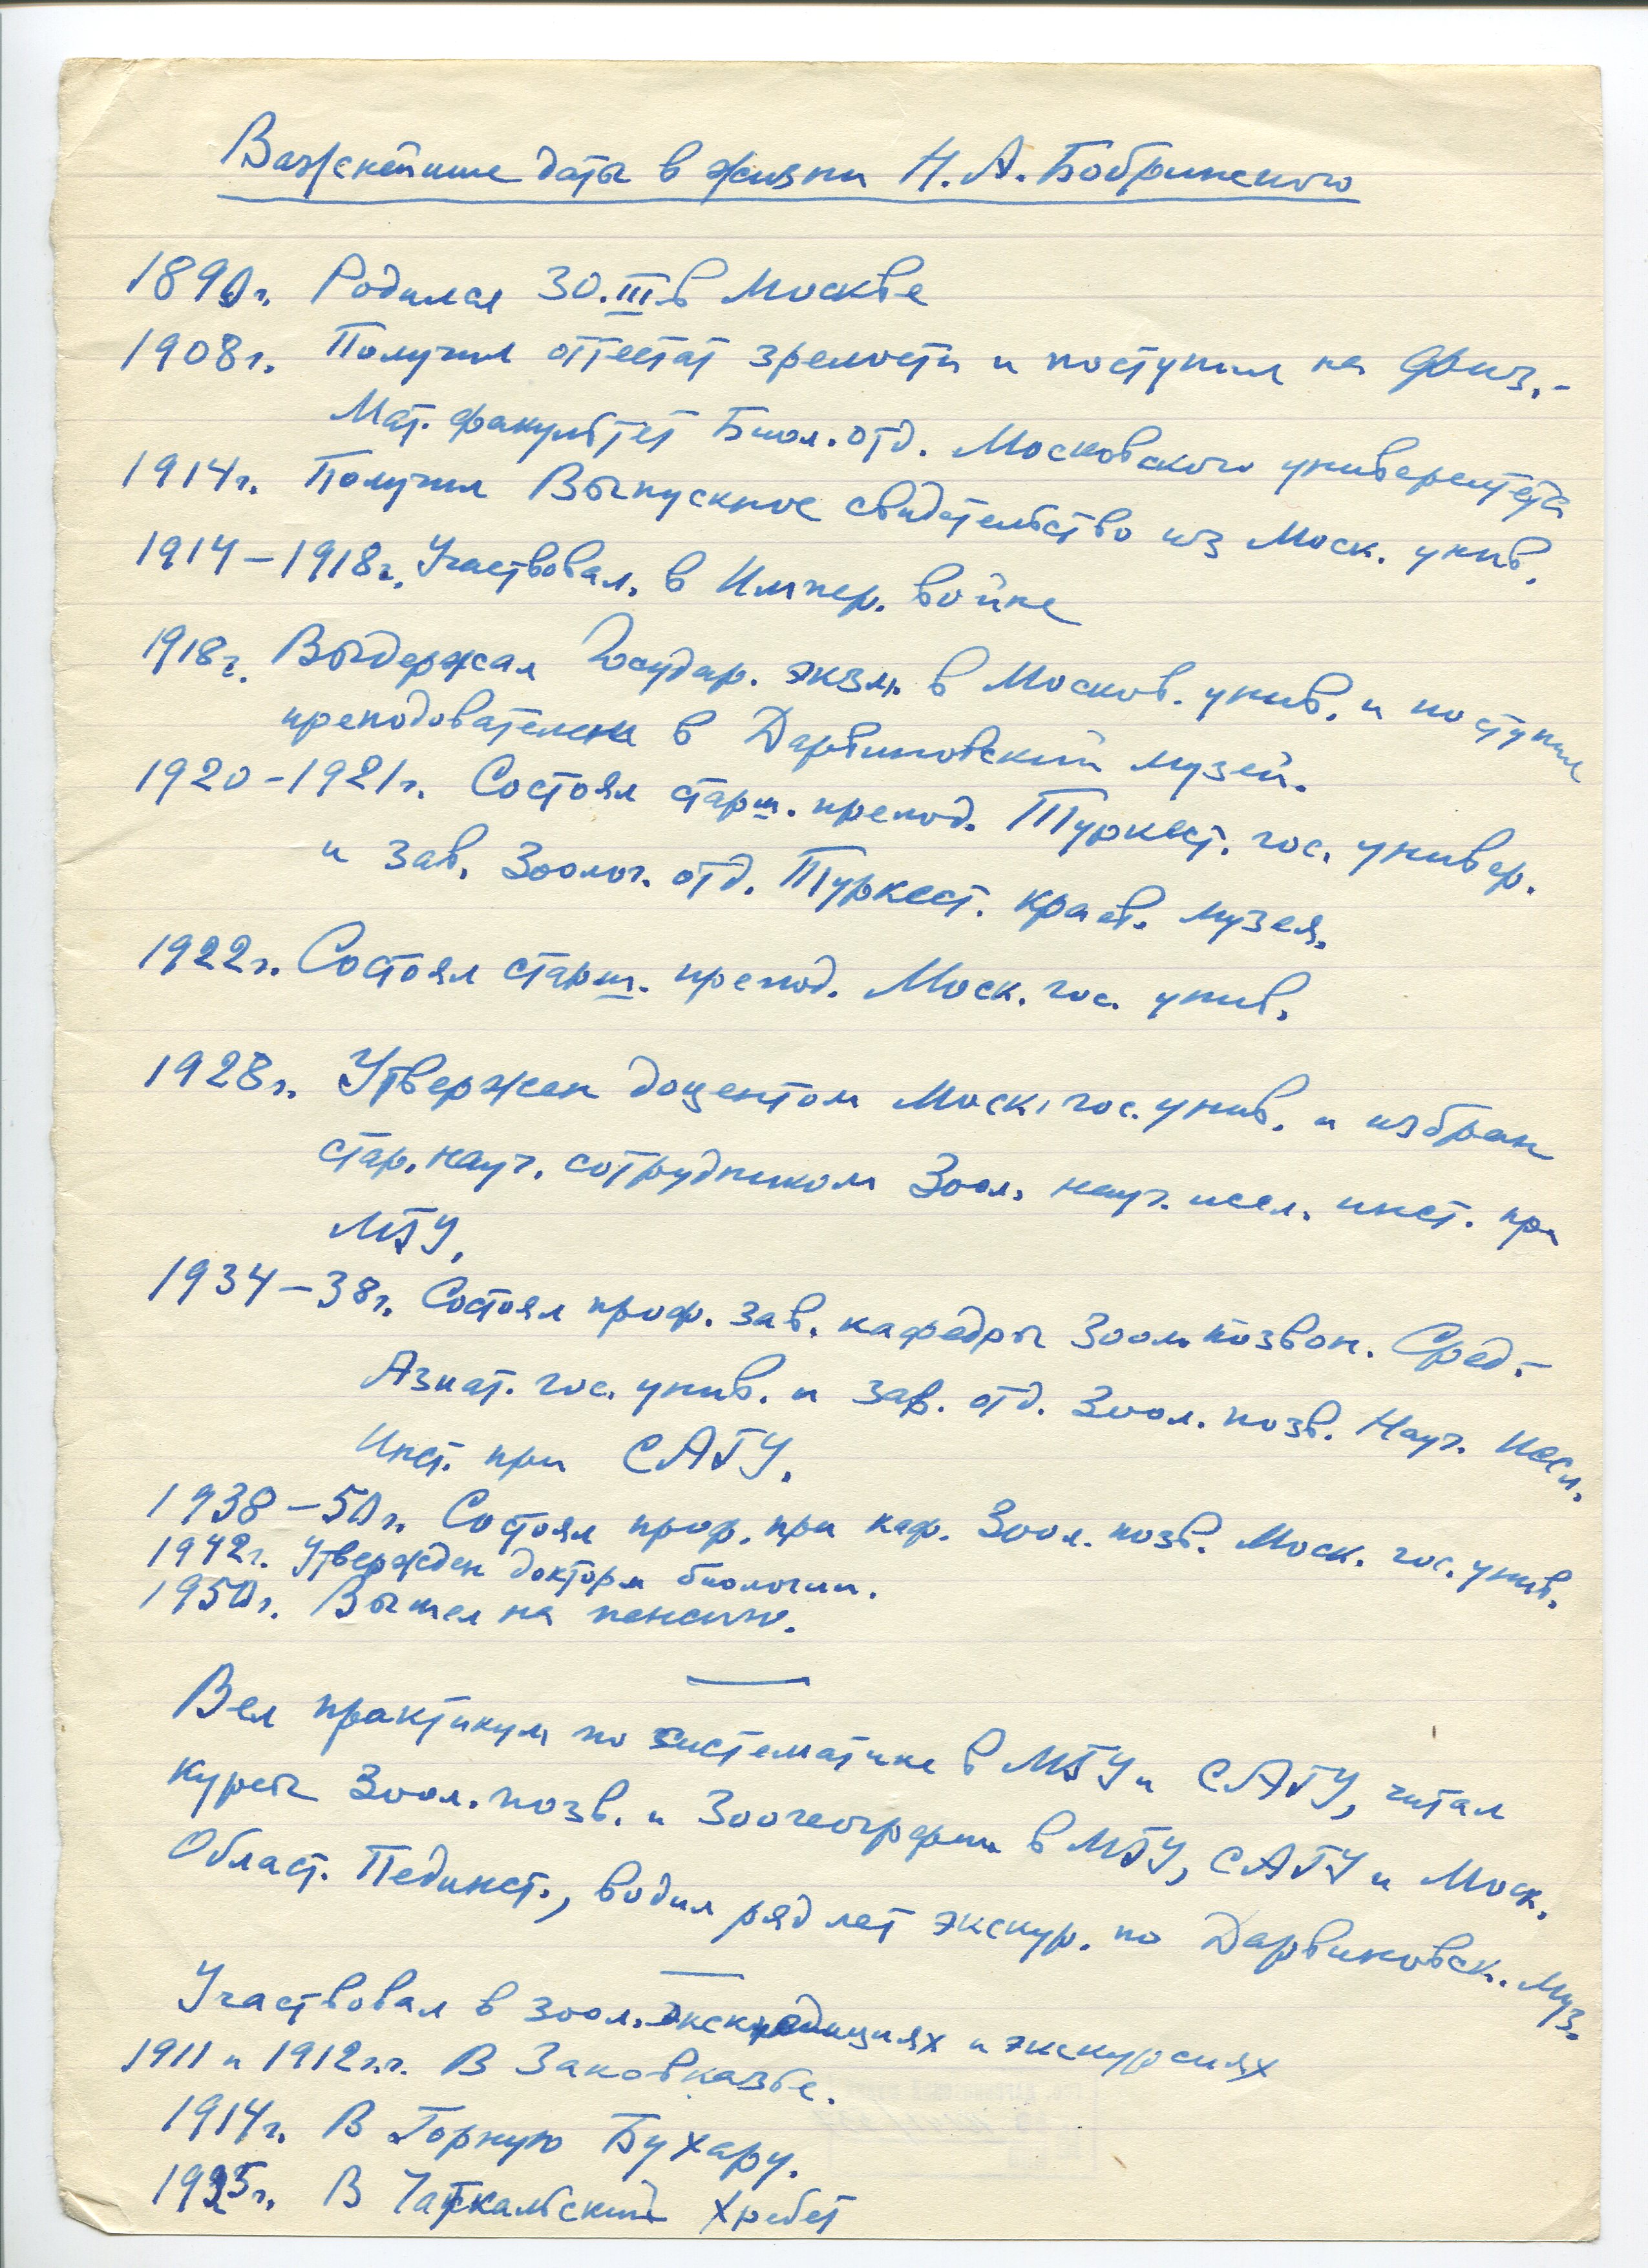 Важнейшие даты в жизни Н. А. Бобринского
1890г. Родился 30.III в Москве
1908г. Получил аттестат зрелости и поступил на Физ.-
Мат. факультет Биол. отд. Московского университета
1914г. Получил Выпускное свидетельство из Моск. унив.
1914–1918г. Участвовал в Импер. войне
1918г. Выдержал Государ. экзм. в Москов. унив. и поступил
преподователем в Дарвиновский музей.
1920-1921г. Состоял старш. препод. Туркест. гос. универ.
и зав. Зоолог. отд. Туркест. краев. музея.
1922г. Состоял старш. препод. Моск. гос. унив.
1928г. Утвержен доцентом Моск. гос. унив. и избран
стар. науч. сотрудником Зоол. науч. иссл. инст. при
МГУ.
1934–38г. Состоял проф. зав. кафедры Зоол. позвон. Сред.-
Азиат. гос. унив. и зав. отд. Зоол. позв. Науч. Иссл.
Инст. при САГУ.
1938–50г. Состоял проф. при каф. Зоол. позв. Моск. гос. унив.
1942г. Утвержден доктором биологии.
1950г. Вышел на пенсию.
Вел практикум по систематике в МГУ и САГУ, читал
курсы Зоол. позв. и Зоогеографии в МГУ, САГУ и Моск.
Област. Пединст., водил ряд лет экскур. по Дарвиновск. Муз.
Участвовал в зоол. экспедициях и экскурсиях
1911 и 1912г.г. В Заковказье.
1914г. В Горную Бухару.
В Чаткальский Хребет